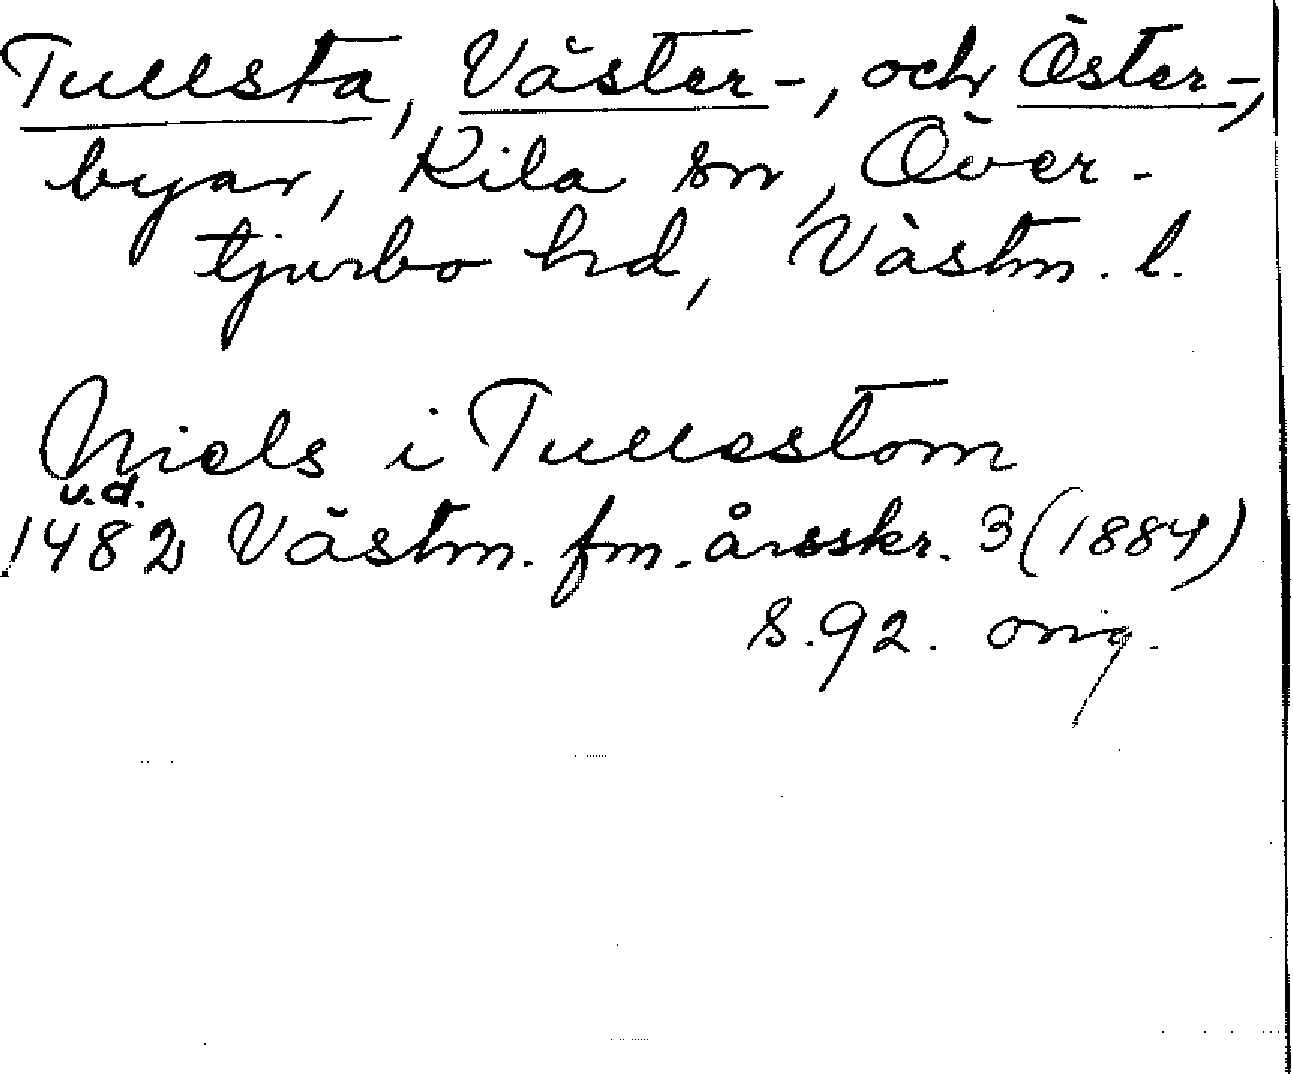 Tullsta, Väster-, och Öster-,
byar, Kila sn, Över-
tjurbo hd, Västm. l.
Niels i Tullestom
u.d.
1482 Västm. fm. årsskr. 3 (1884)
s. 92. orig.